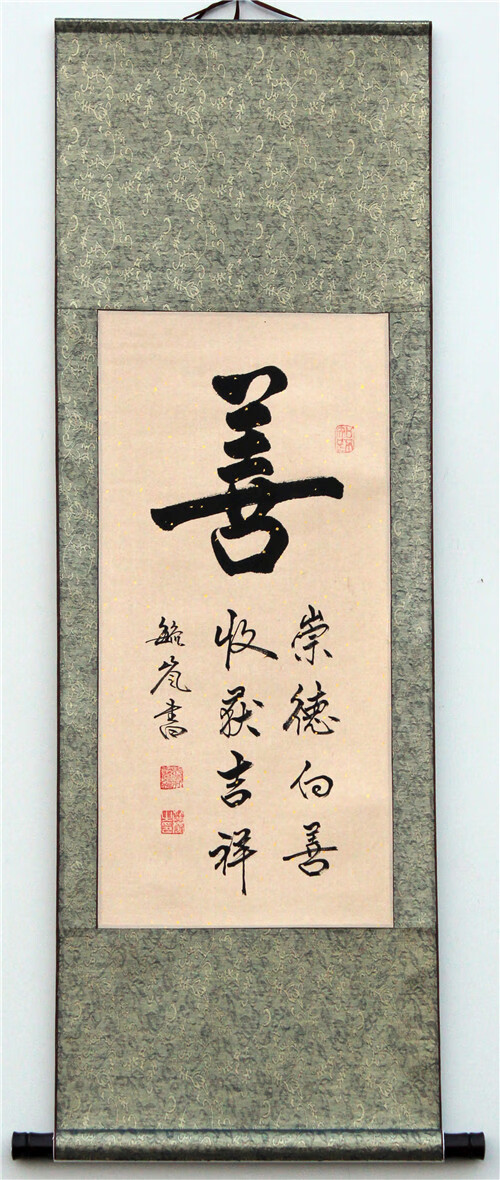 善
崇德向善
收获吉祥
书